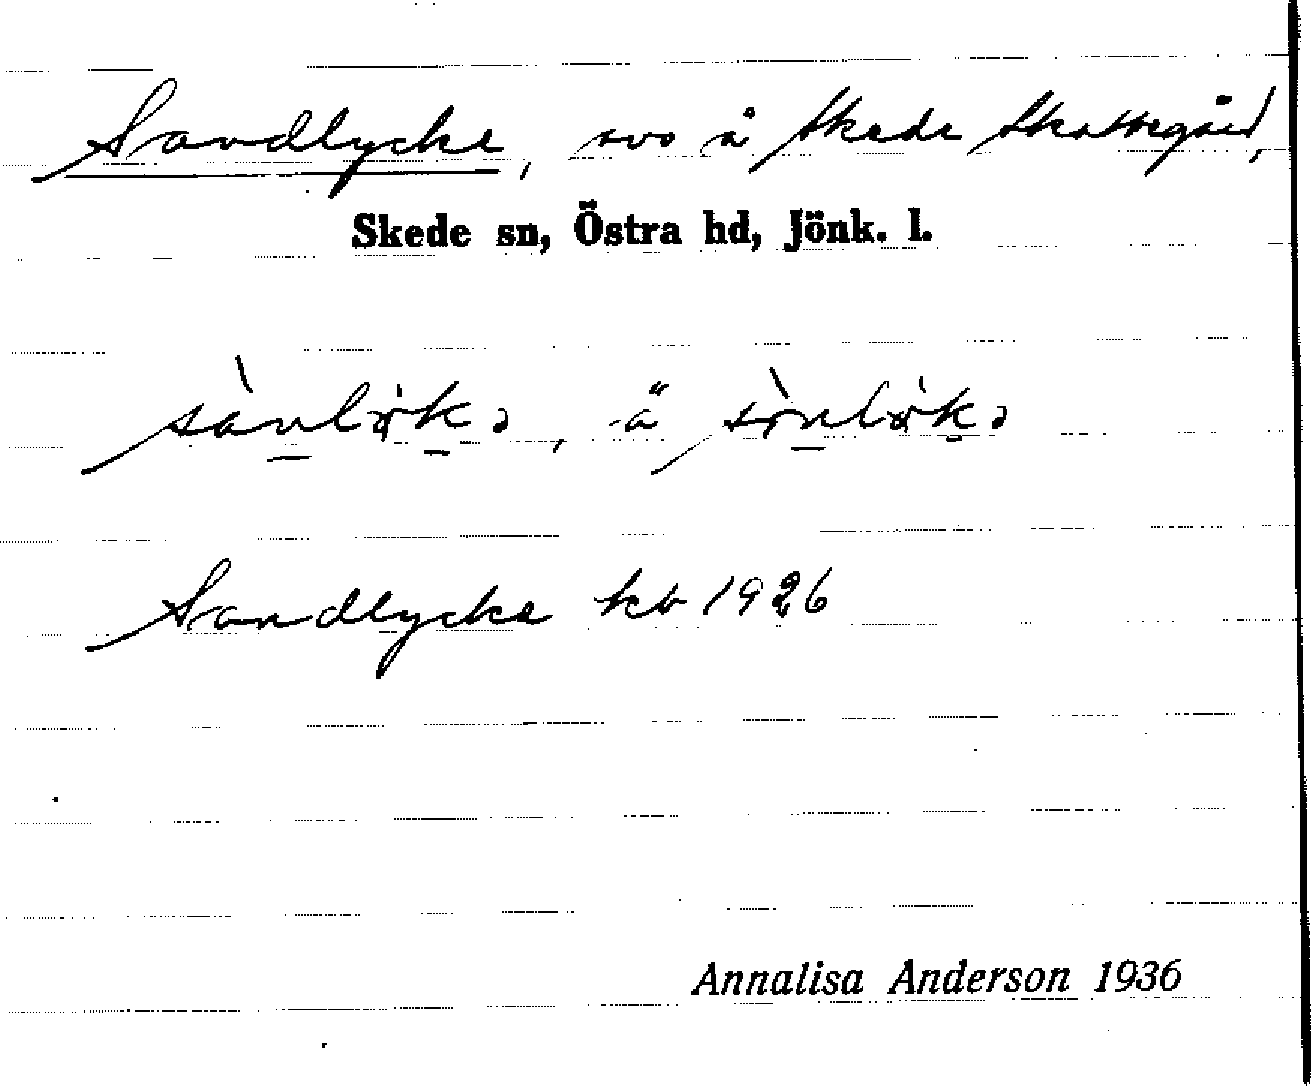 Sandlycke, svo å Skede Skattegård,
Skede sn, Östra hd, Jönk. l.
Sandlycke kb 1926
Annalisa Anderson 1936